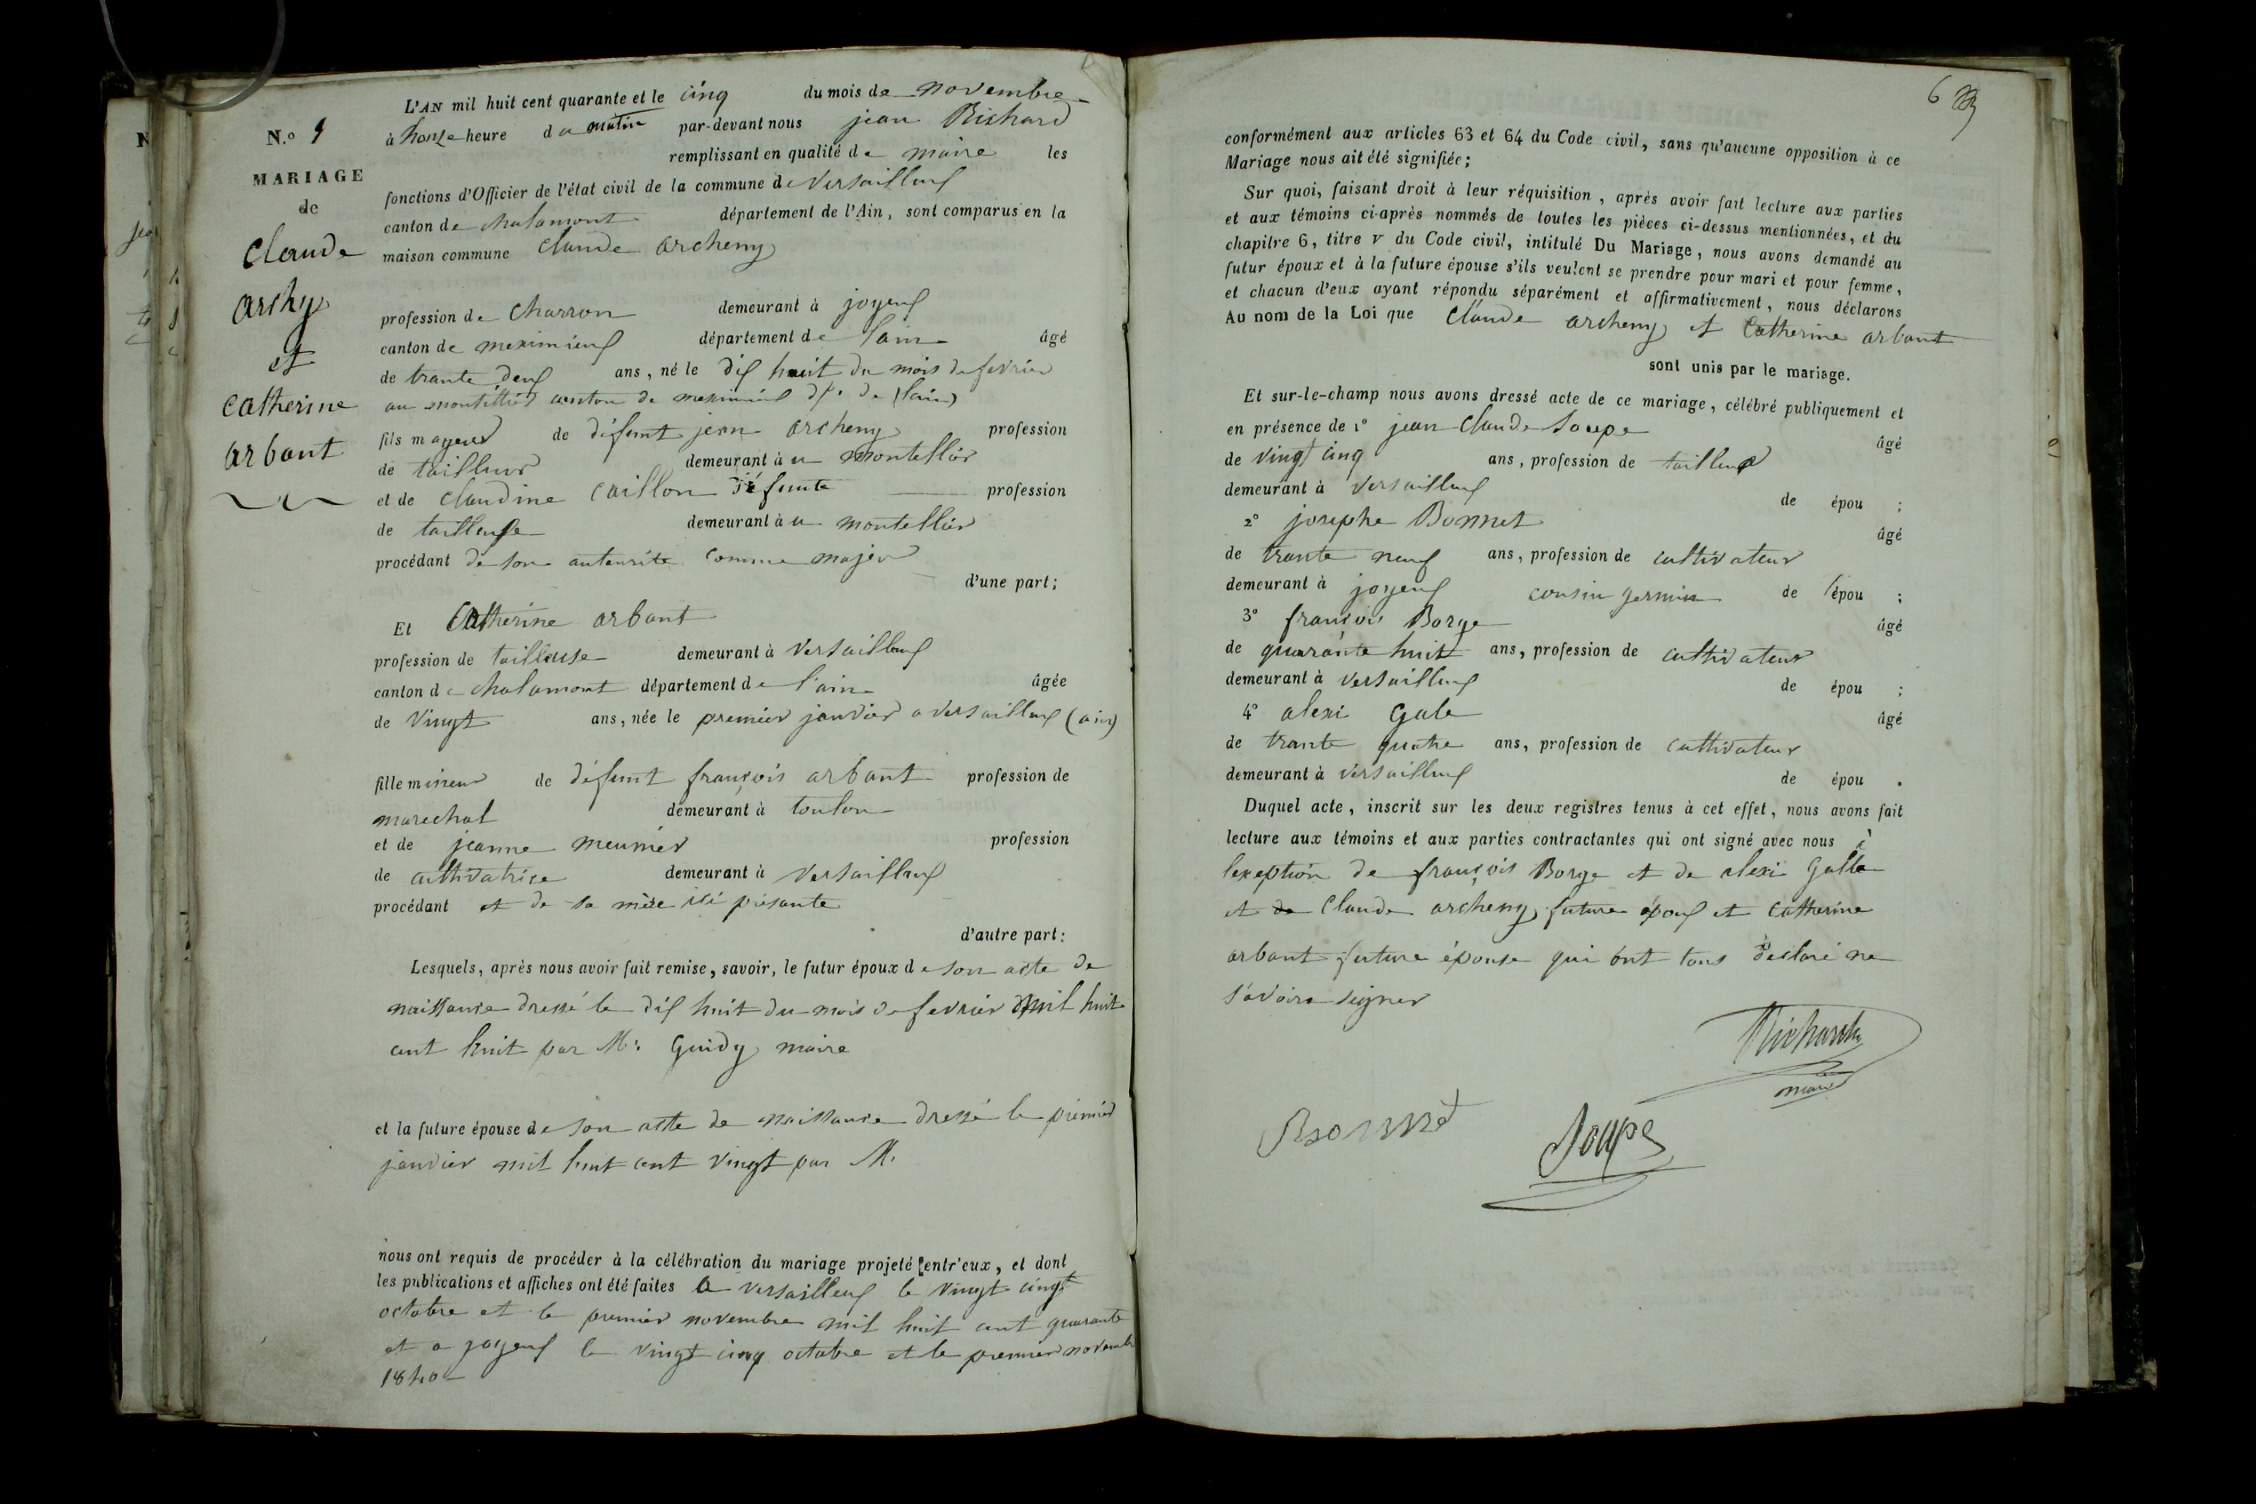 N.o 9
MARIAGE
de
Claude
archy
et
Catherine
arbant
L'AN mil huit cent quarante et le cinq du mois de novembre
à honze heure du matin par-devant nous jean Richard
remplissant en qualité de maire les
fonctions d'Officier de l'état civil de la commune de Versailleux
canton de chalamont département de l'Ain, sont comparus en la
maison commune Claude archeny
profession de charron demeurant à joyeux
canton de meximieux département de l'ain âgé
de trante deux ans, né le dix huit du mois de fevrier
au montellier canton de meximieux dt. de (lain)
fils majeur de défunt jean archeny profession
de tailleur demeurant à u montellier
et de claudine Caillon défunte profession
de tailleuse demeurant à u montellier
procédant de son auteurité comme majeur
d'une part;
Et Catherine arbant
profession de tailleuse demeurant à Versailleux
canton de chalamont département de l'ain âgée
de Vingt ans, née le premier janvier a versailleux (ain)
fille mineur de défunt françois arbant profession de
marechal demeurant à toulon
et de jeanne meunier profession
de cultivatrice demeurant à versailleux
procédant et de sa mère ici présante
d'autre part:
Lesquels, après nous avoir fait remise, savoir, le futur époux de son acte de
naissance dressé le dix huit du mois de fevrier mil huit
cent huit par Mr. Guidy maire
et la future épouse de son acte de naissance dressé le premier
janvier mil huit cent vingt par M.
nous ont requis de procéder à la célébration du mariage projeté entr'eux, et dont
les publications et affiches ont été faites a versailleux le vingt cinqt
octobre et le premier novembre mil huit cent quarante
et a joyeux le vingt cinq octobre et le premier novembre
1840
6
conformément aux articles 63 et 64 du Code civil, sans qu'aucune opposition à ce
Mariage nous ait été signifiée;
Sur quoi, faisant droit à leur réquisition, après avoir fait lecture aux parties
et aux témoins ci-après nommés de toutes les pièces ci-dessus mentionnées, et du
chapitre 6, titre V du Code civil, intitulé Du Mariage, nous avons demandé au
futur époux et à la future épouse s'ils veulent se prendre pour mari et pour femme,
et chacun d'eux ayant répondu séparément et affirmativement, nous déclarons
Au nom de la Loi que Claude archeny et Catherine arbant
sont unis par le mariage.
Et sur-le-champ nous avons dressé acte de ce mariage, célébré publiquement et
en présence de 1° jean Claude Soupe âgé
de vingt cinq ans, profession de tailleur
demeurant à Versailleux de épou ;
2° josephe Bonnet âgé
de trante neuf ans, profession de cultivateur
demeurant à joyeux cousin germin de l'épou ;
3° françois Borge âgé
de quarante huit ans, profession de cultivateur
demeurant à versailleux de épou ;
4° alexi Gale âgé
de trante quatre ans, profession de cultivateur
demeurant à versailleux de épou .
Duquel acte, inscrit sur les deux registres tenus à cet effet, nous avons fait
lecture aux témoins et aux parties contractantes qui ont signé avec nous à
lexeption de françois Borge et de alexi Galle
et de Claude archeny future époux et Catherine
arbant future épouse qui ont tous déclaré ne
savoire signer
Richard
maire
Bonnet
Soupe